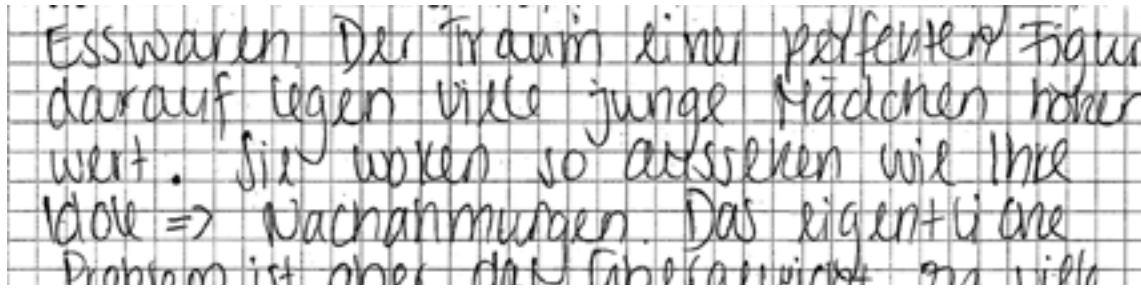 Esswaren. Der Traum einer perfekten Figur
darauf legen viele junge Mädchen hohen
wert. Sie wollen so aussehen wie Ihre
Idole => Nachahmungen. Das eigentliche
Problem ist aber das Übergewicht an viele